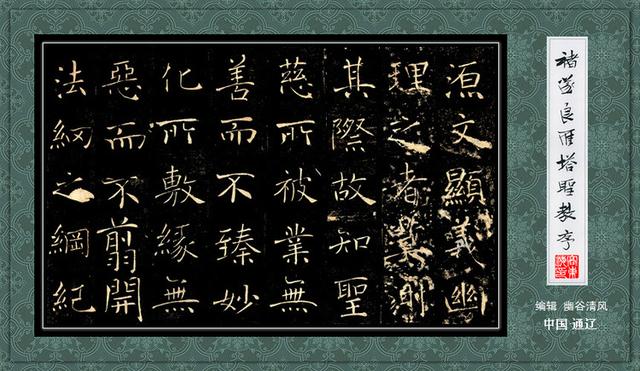 源文顯義幽
理之者莫測
其際故知聖
慈所被業無
善而不臻妙
化所敷緣無
惡而不翦開
法網之綱紀
褚遂良雁塔聖教序
编辑 幽谷清风
中国·通辽